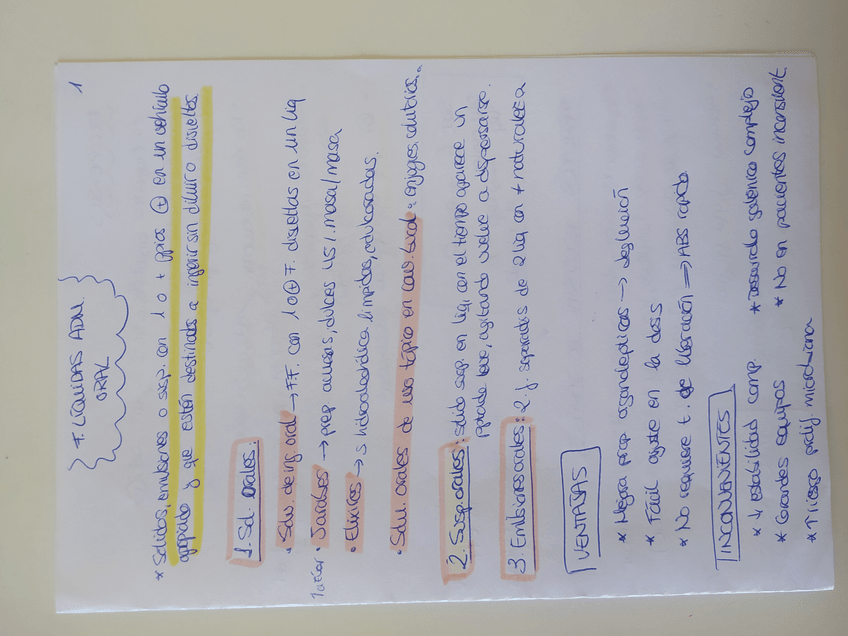 1
F. LÍQUIDAS ADM.
ORAL
* Sólidos, emulsiones o susp. con 1 o + ppios ⊕ en un vehículo
apropiado y que están destinados a ingerir sin diluir o disueltas
1. Sol. orales:
• Solu. de ing. oral → F.F. con 1 o ⊕ F. disueltas en un liq
• Jarabes → prep acuosas, dulces 45%. masa/masa
• Elixires → s hidroalcohólica límpidas, edulcoradas.
• Solu. orales de uso tópico en cav. bucal: enjuagues, colutorios..
2. Susp orales: sólido susp. en liq, con el tiempo aparece un
pptado leve, agitando vuelve a dispersarse.
3. Emulsiones orales: 2 f. separadas de 2 liq en ≠ naturaleza
VENTAJAS
* Mejora prop organolépticas → deglución
* Fácil ajuste en la dosis
* No requiere t. de liberación ⇒ ABS rápida
INCONVENIENTES
* ↓ estabilidad comp.
* Desarrollo galénico complejo
* Grandes equipos
* No en pacientes inconscient.
* Riesgo prolif. microbiana